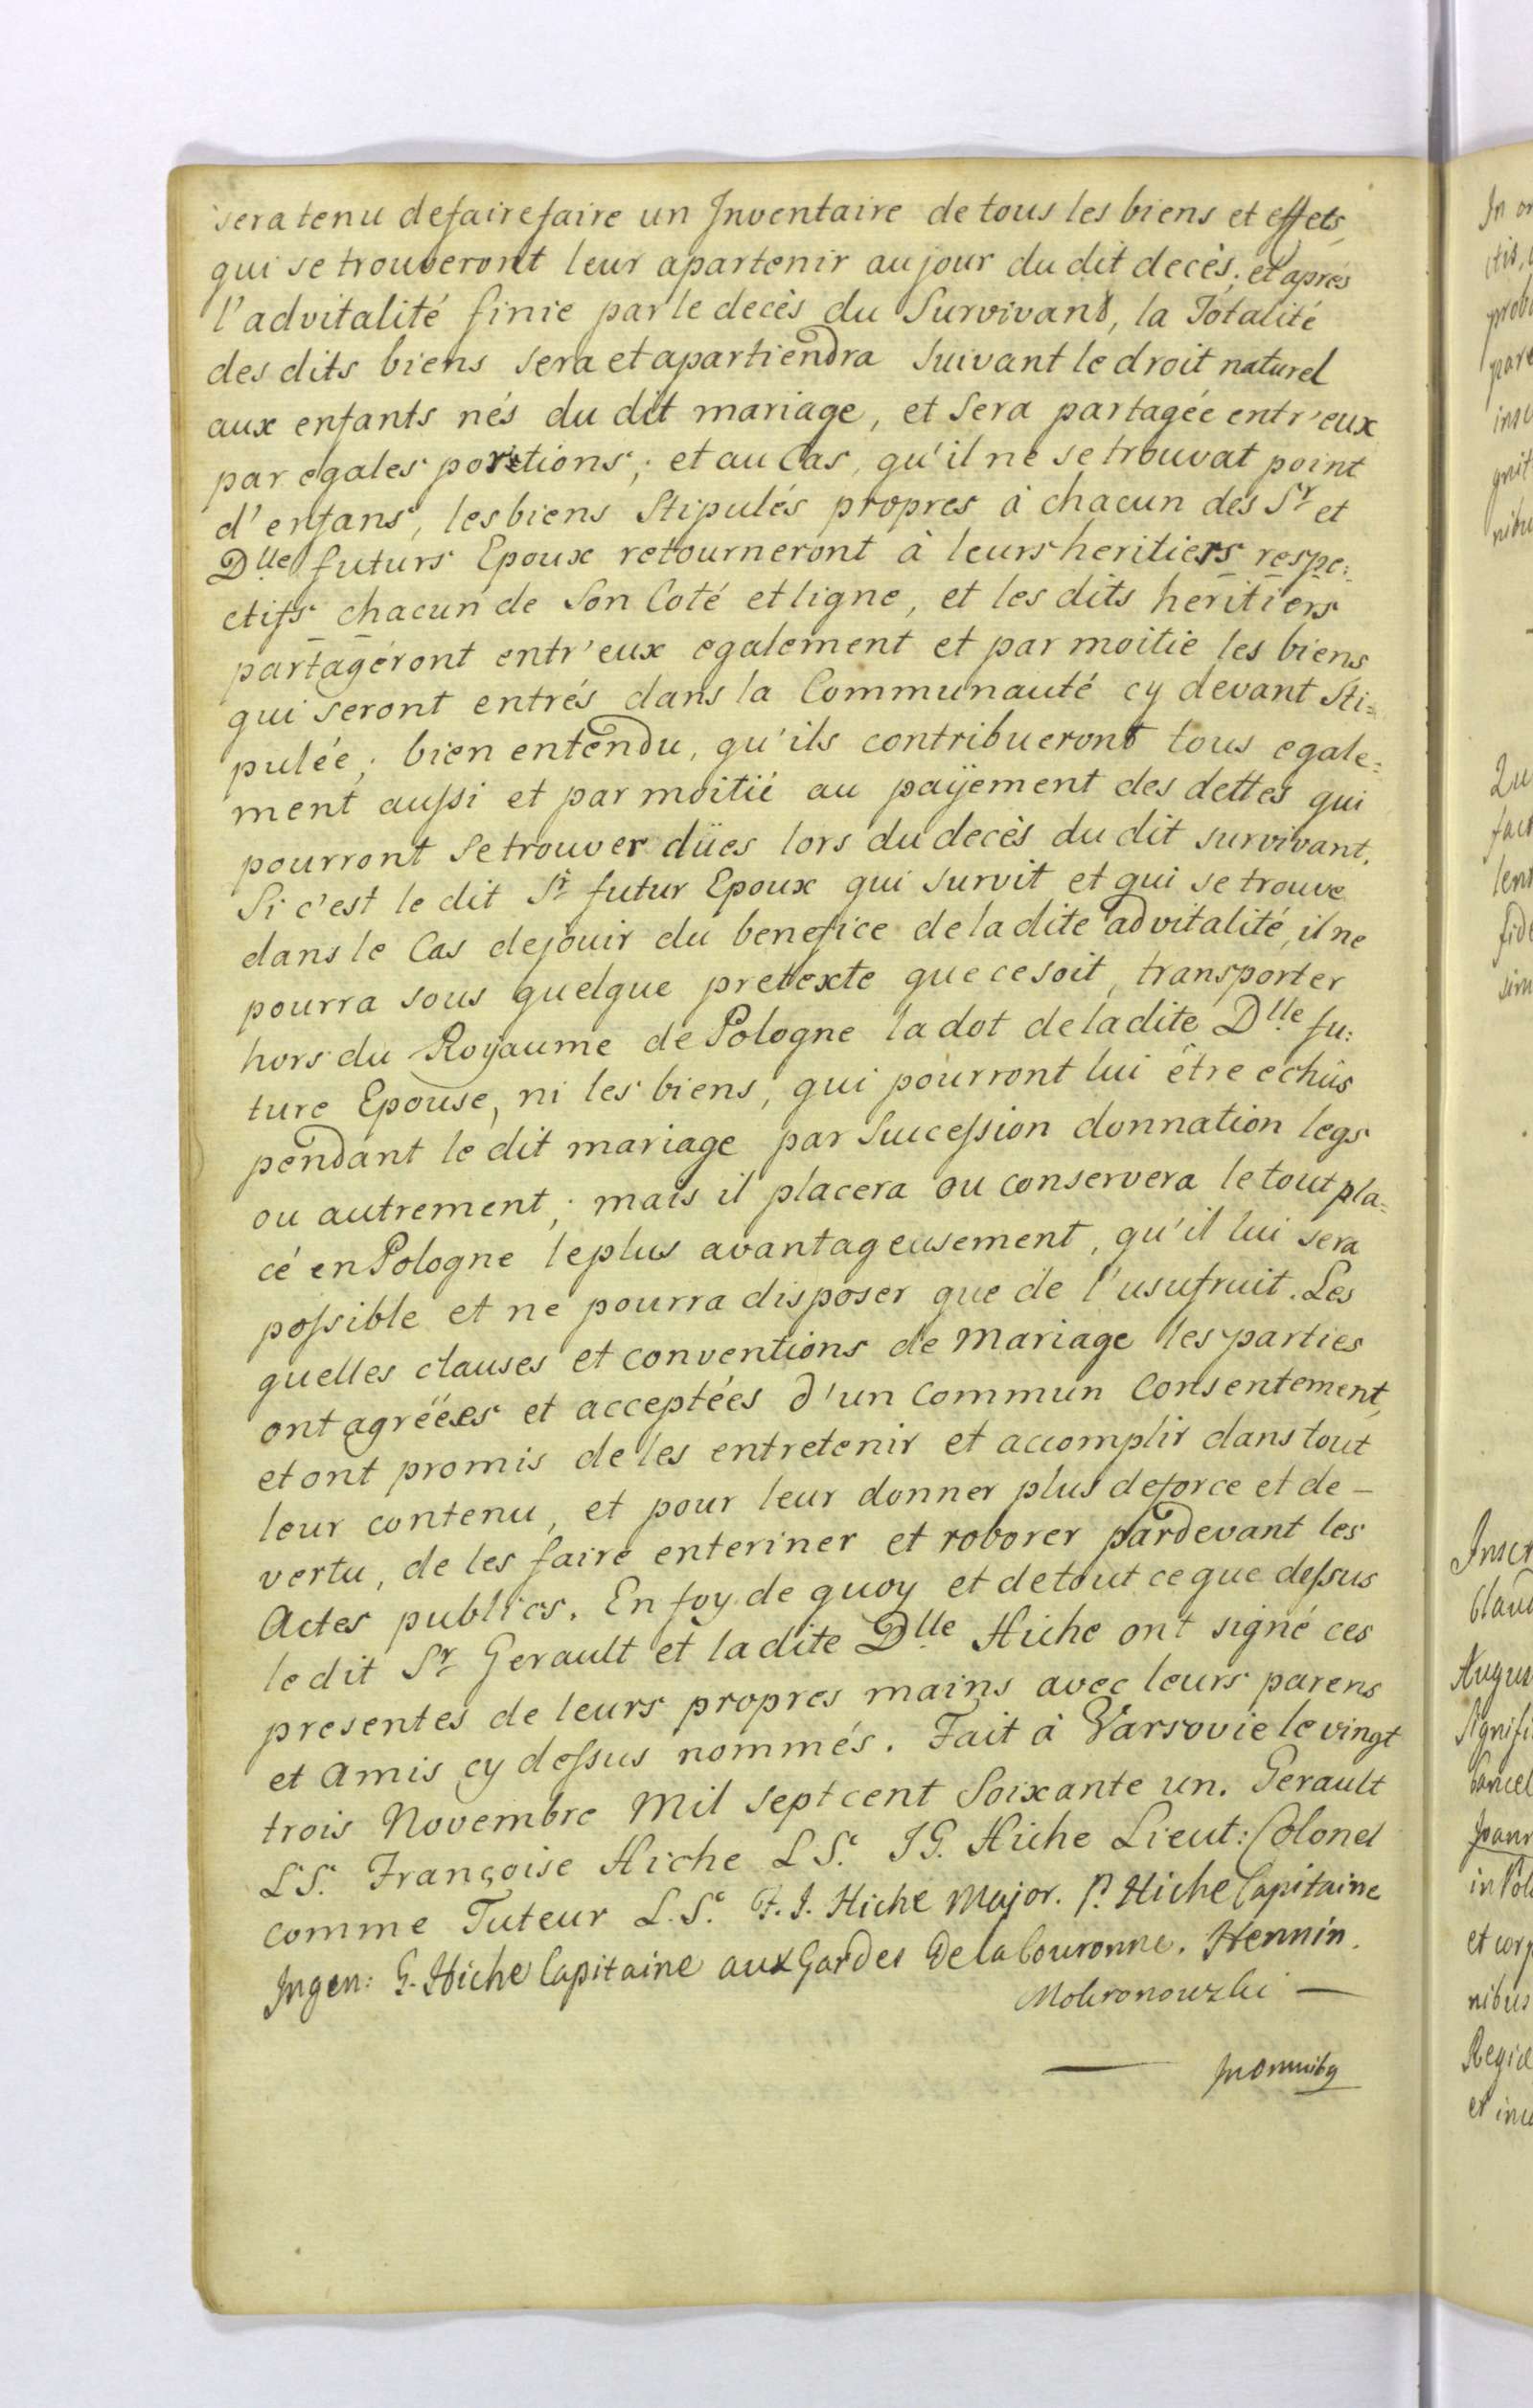 sera tenu de faire faire un Inventaire de tous les biens et effets,
qui se trouveront leur apartenir au jour du dit decès; et aprés
l'advitalité finie par le decès du Survivant, la Totalité
des dits biens sera et apartiendra suivant le droit naturel
aux enfants nés du dit mariage, et sera partagée entr'eux
par egales portions; et au Cas, qu'il ne se trouvat point
d'enfans, les biens Stipulés propres à chacun des Sr et
Dlle futurs Epoux retourneront à leurs heritiers respe:
ctifs chacun de Son Coté et ligne, et les dits heritiers
partageront entr'eux egalement et par moitie les biens
qui seront entrés dans la Communauté cy devant Sti=
pulée; bien entendu, qu'ils contribueront tous egale=
ment aussi et par moitié au payement des dettes qui
pourront se trouver dües lors du decès du dit survivant.
Si c'est le dit Sr futur Epoux qui survit et qui se trouve
dans le Cas de jouir du benefice de la dite advitalité, il ne
pourra sous quelque pretexte que ce soit, transporter
hors du Royaume de Pologne la dot de la dite Dlle fu:
ture Epouse, ni les biens, qui pourront lui être echûs
pendant le dit mariage par Succession donnation legs
ou autrement; mais il placera ou conservera le tout pla=
cé en Pologne le plus avantageusement, qu'il lui sera
possible et ne pourra disposer que de l'usufruit. Les
quelles clauses et conventions de Mariage les parties
ont agréées et acceptées d'un commun Consentement,
et ont promis de les entretenir et accomplir dans tout
leur contenu, et pour leur donner plus de force et de –
vertu, de les faire enteriner et roborer pardevant les
Actes publics. En foy de quoy et de tout ce que dessus
le dit Sr Gerault et la dite Dlle Hiche ont signé ces
presentes de leurs propres mains avec leurs parens
et Amis cy dessus nommés. Fait à Varsovie le vingt
trois Novembre Mil sept cent Soixante un. Gerault
LS. Françoise Hiche LS. JG. Hiche Lieut: Colonel
comme Tuteur L.S. F. J. Hiche Major. P. Hiche Capitaine
Ingen: G. Hiche Capitaine aux Gardes de la Couronne. Hennin.
Mokronowzki —
— In omnibg
In
ctis,
prob
pare
nibu
Qu
fact
fide
sim
Inscr
Cland
Augus
Signifi
Cancel
Joann
in Pol
et corp
nibus
Regiæ
et inc